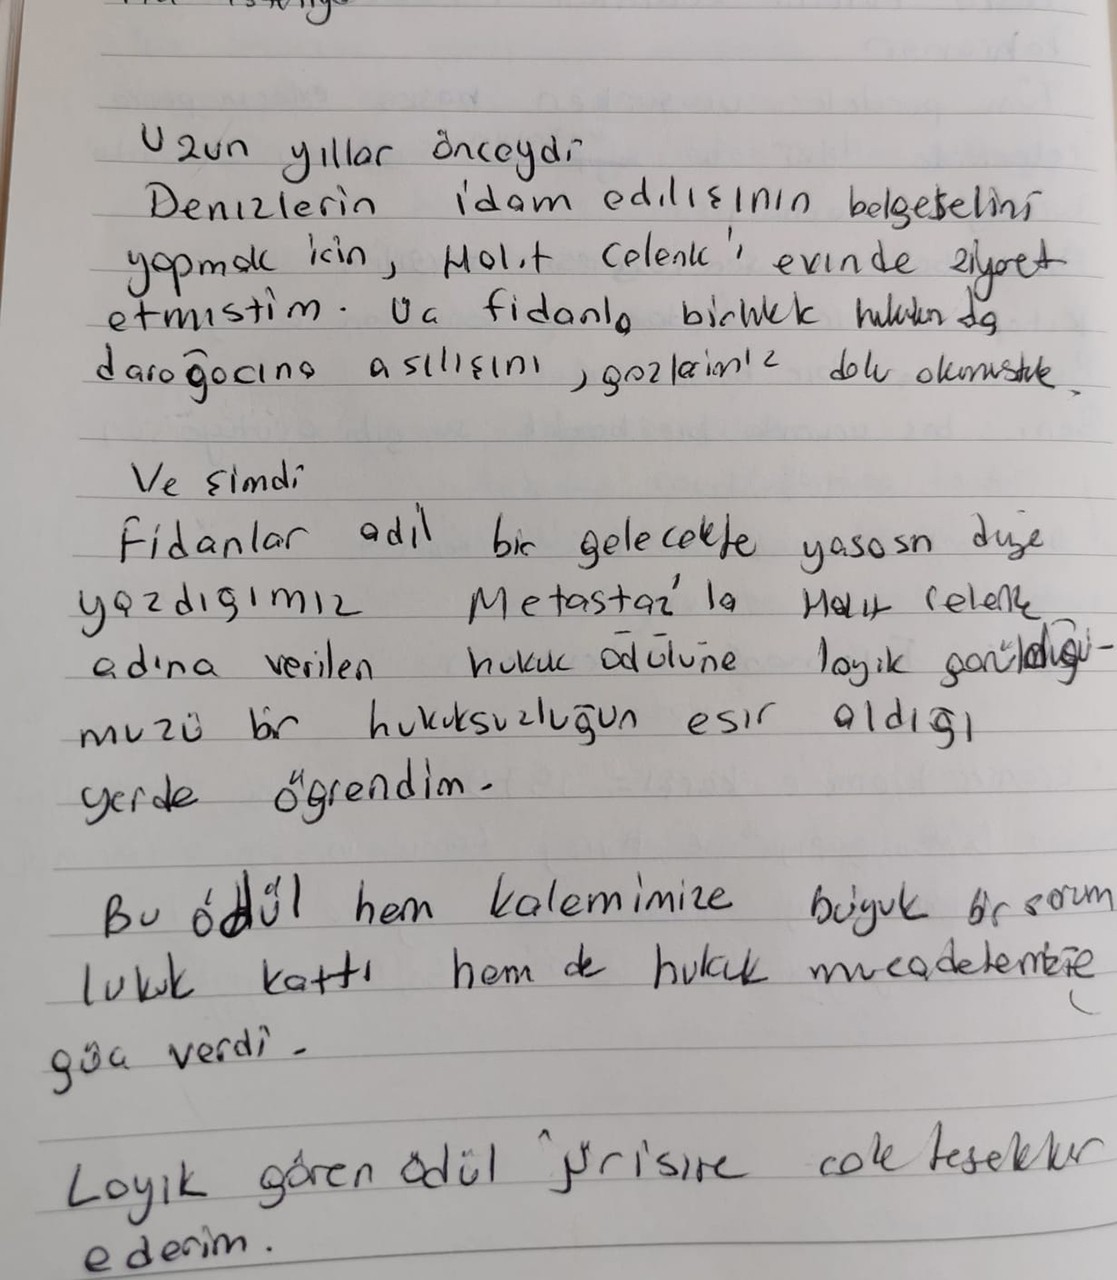 Uzun yıllar önceydi
Denızlerin idam edılışının belgeselini
yapmak icin, Halıt Celenk'i evinde ziyaret
etmıstim. Üc fidanla birlikte hukukun da
darağacına asılışını, gozlerimiz dolu okumustuk.
Ve şimdi
Fidanlar adil bir gelecekte yasasın diye
yazdıgımız Metastaz'la Halıt Celenk
adına verilen hukuk ödülüne layık görüldüğü-
muzü bir hukuksuzluğun esır aldığı
yerde öğrendim.
Bu ödül hem kalemimize büyuk bir sorum
luluk kattı hem de hukuk mucadelemize
güc verdi.
Layık gören ödül jürisine cok tesekkur
ederim.